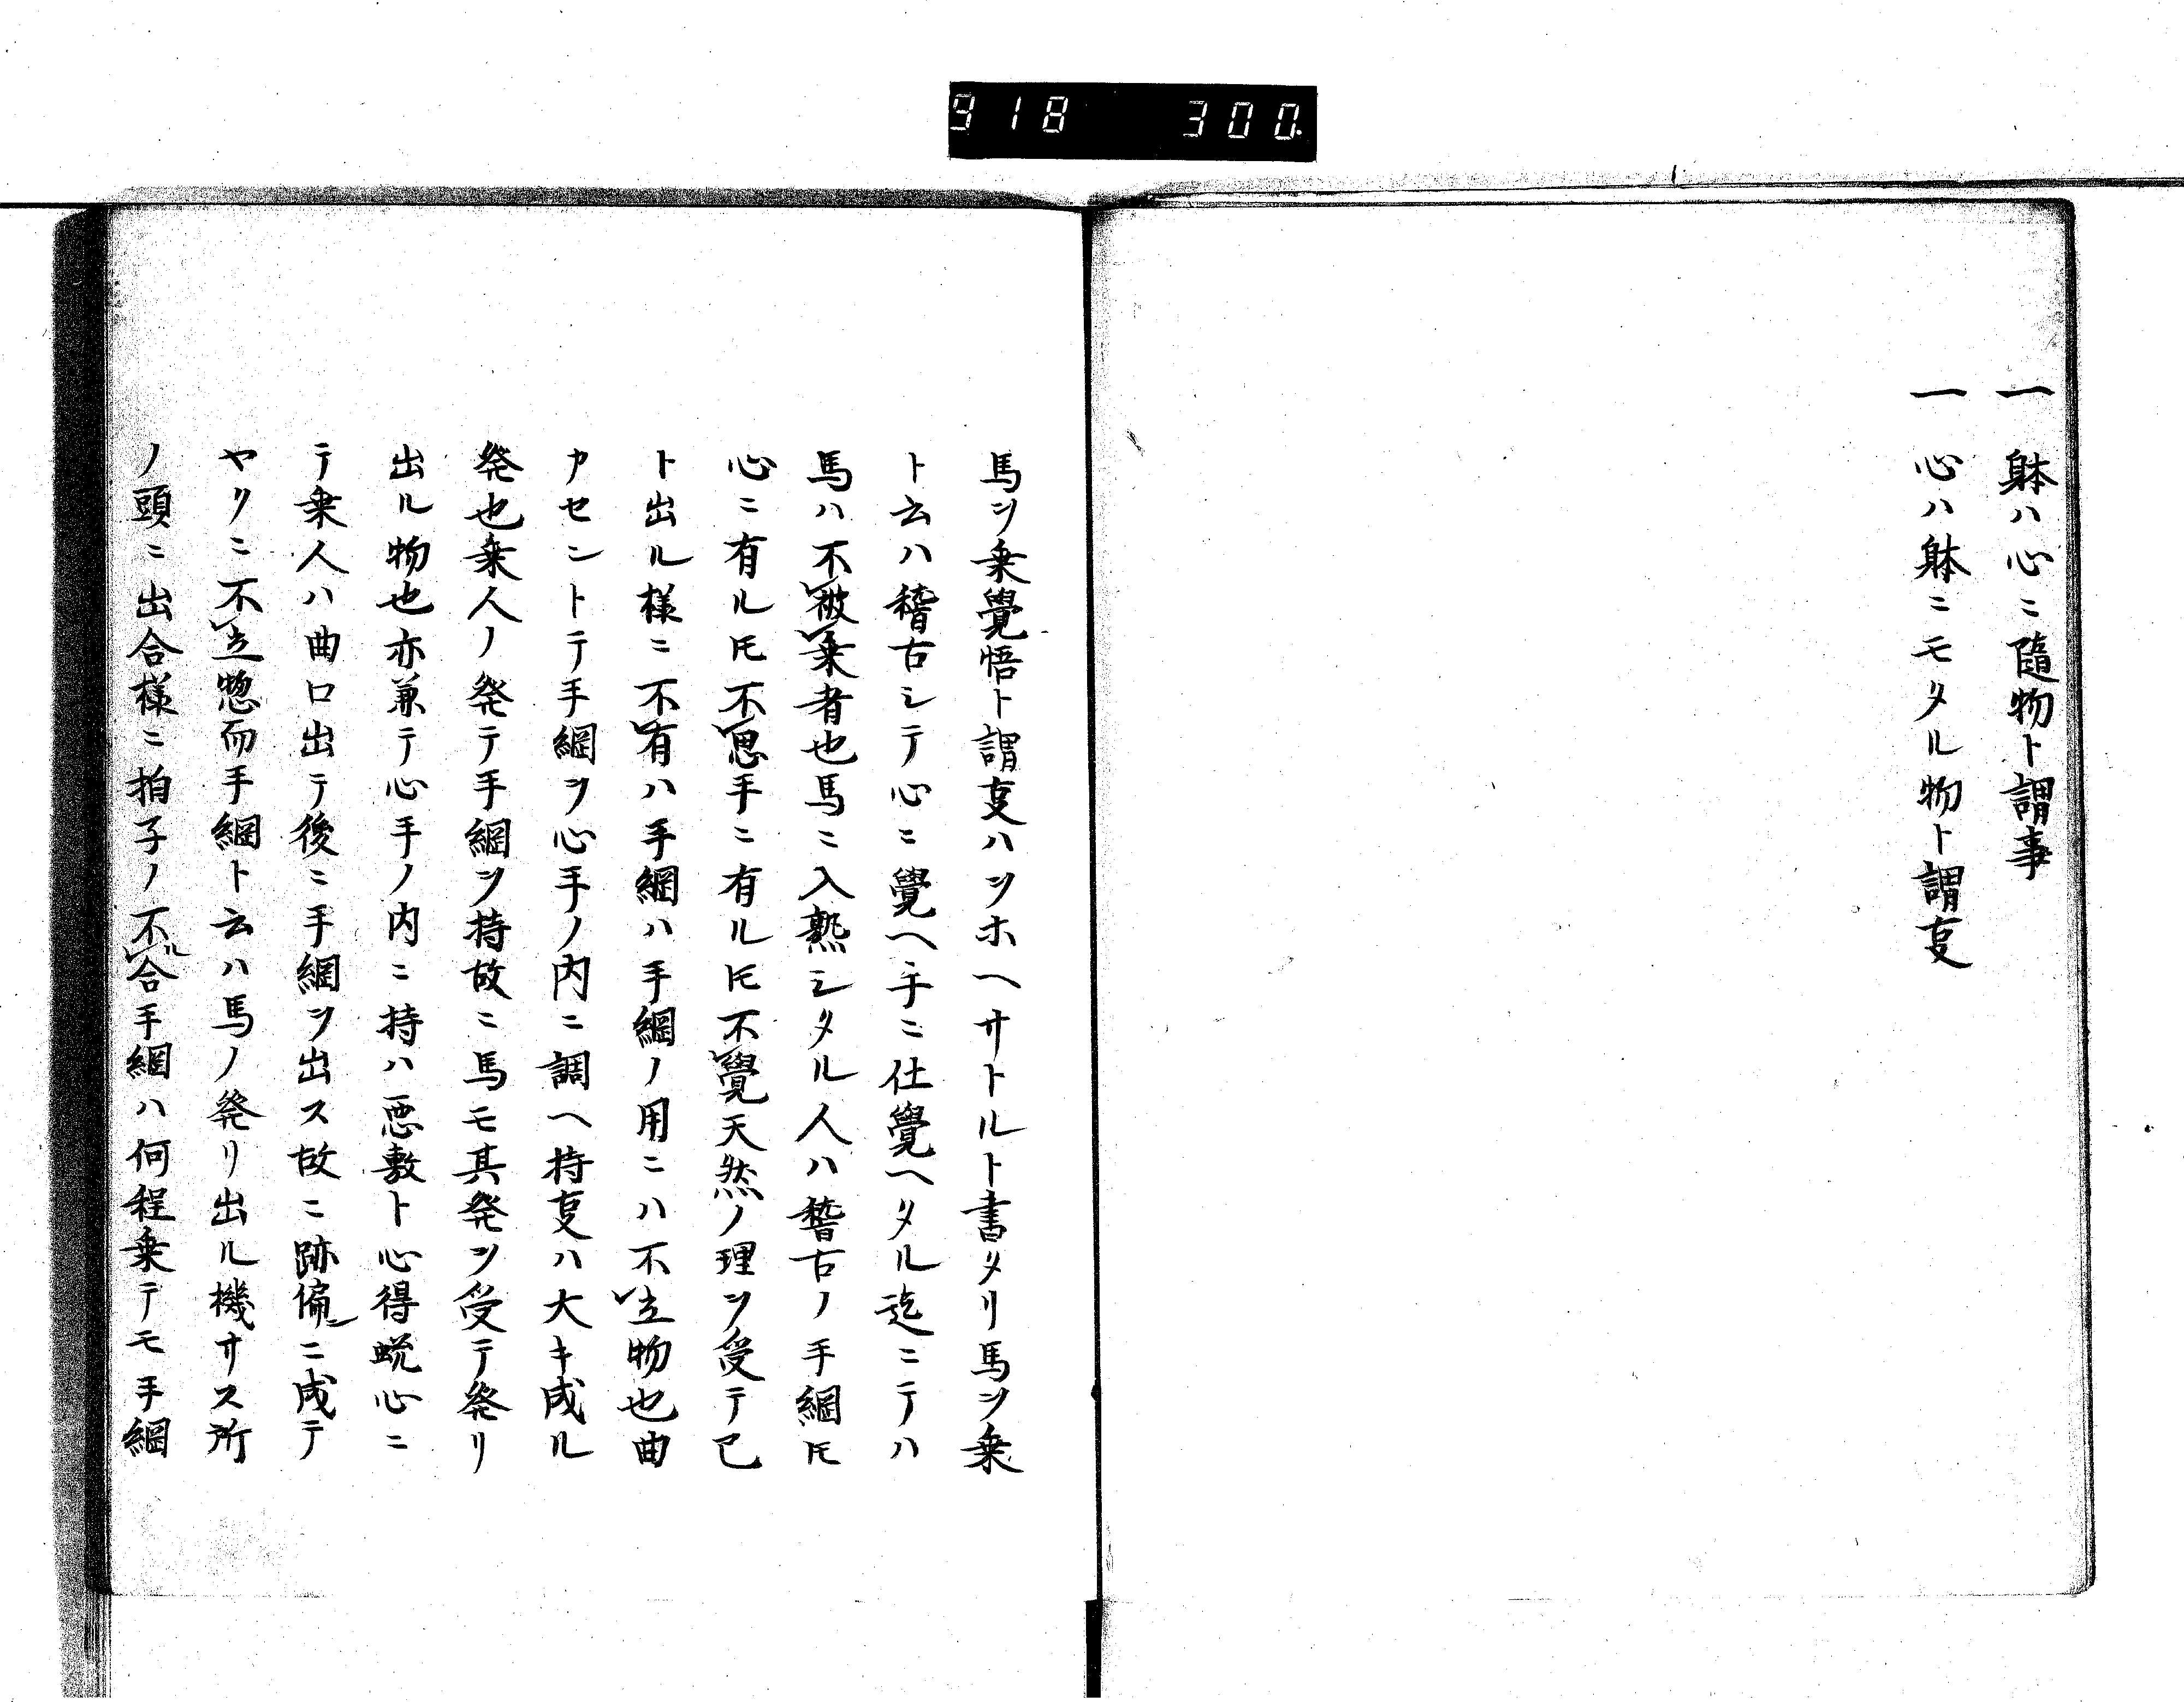 918 300
一 躰ハ心ニ随物ト謂事
一 心ハ躰ニモタル物ト謂叓
馬ヲ乗覺悟ト謂叓ハヲホヘサトルト書タリ馬ヲ乗
ト云ハ稽古シテ心ニ覺ヘ手ニ仕覺ヘタル迄ニテハ
馬ハ不被乗者也馬ニ入熟シタル人ハ稽古ノ手綱ヒ
心ニ有ルヒ不思手ニ有ルヒ不覺天然ノ理ヲ受テ已
ト出ル様ニ不有ハ手綱ハ手綱ノ用ニハ不立物也曲
アセントテ手綱ヲ心手ノ内ニ調ヘ持叓ハ大キ成ル
発也乗人ノ発テ手綱ヲ持故ニ馬モ其発ヲ受テ発リ
出ル物也亦兼テ心手ノ内ニ持ハ悪敷ト心得蛻心ニ
テ乗人ハ曲口出テ後ニ手綱ヲ出ス故ニ跡偏ニ成テ
ヤリニ不立惣而手綱ト云ハ馬ノ発リ出ル機サス所
ノ頭ニ出合様ニ拍子ノ不ル合手綱ハ何程乗テモ手綱